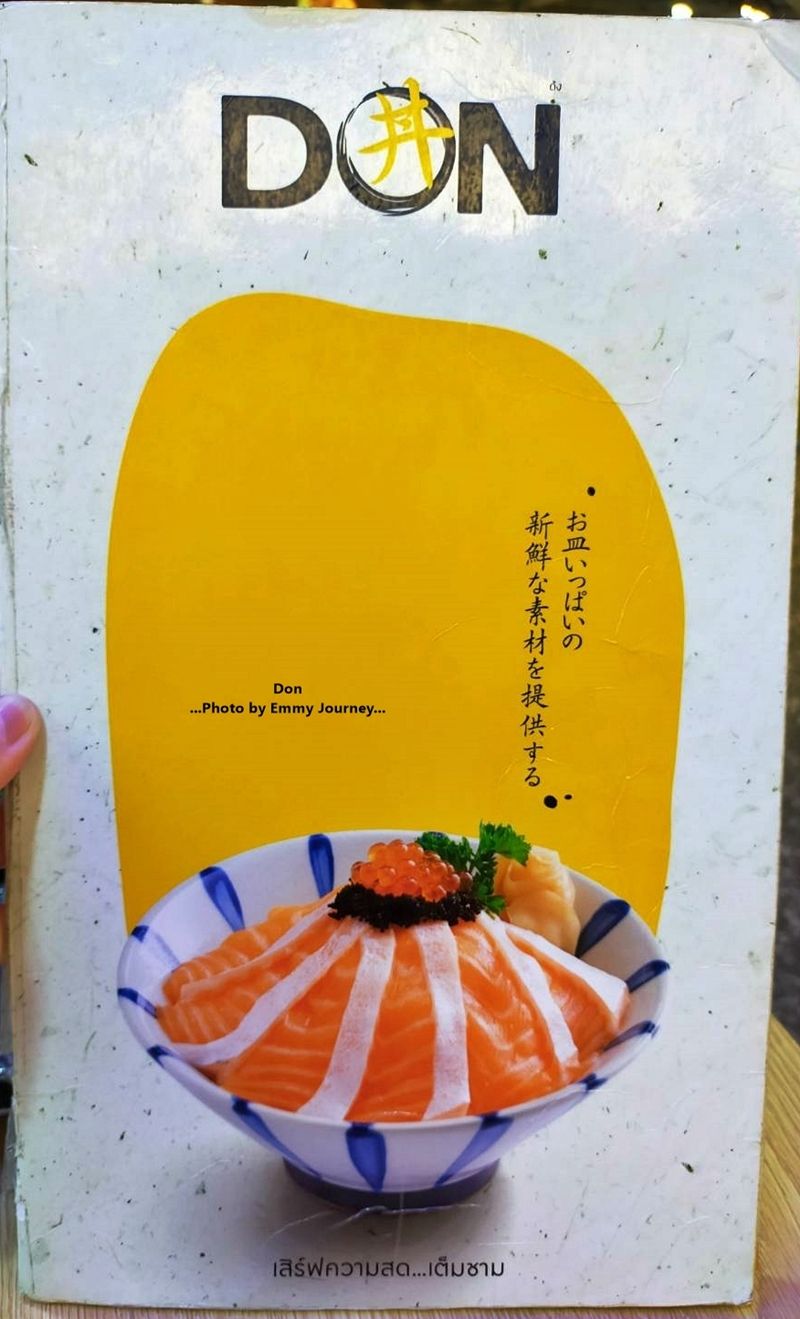 ด้ง
DON
丼
お皿いっぱいの
新鮮な素材を提供する
Don
...Photo by Emmy Journey...
เสิร์ฟความสด...เต็มชาม